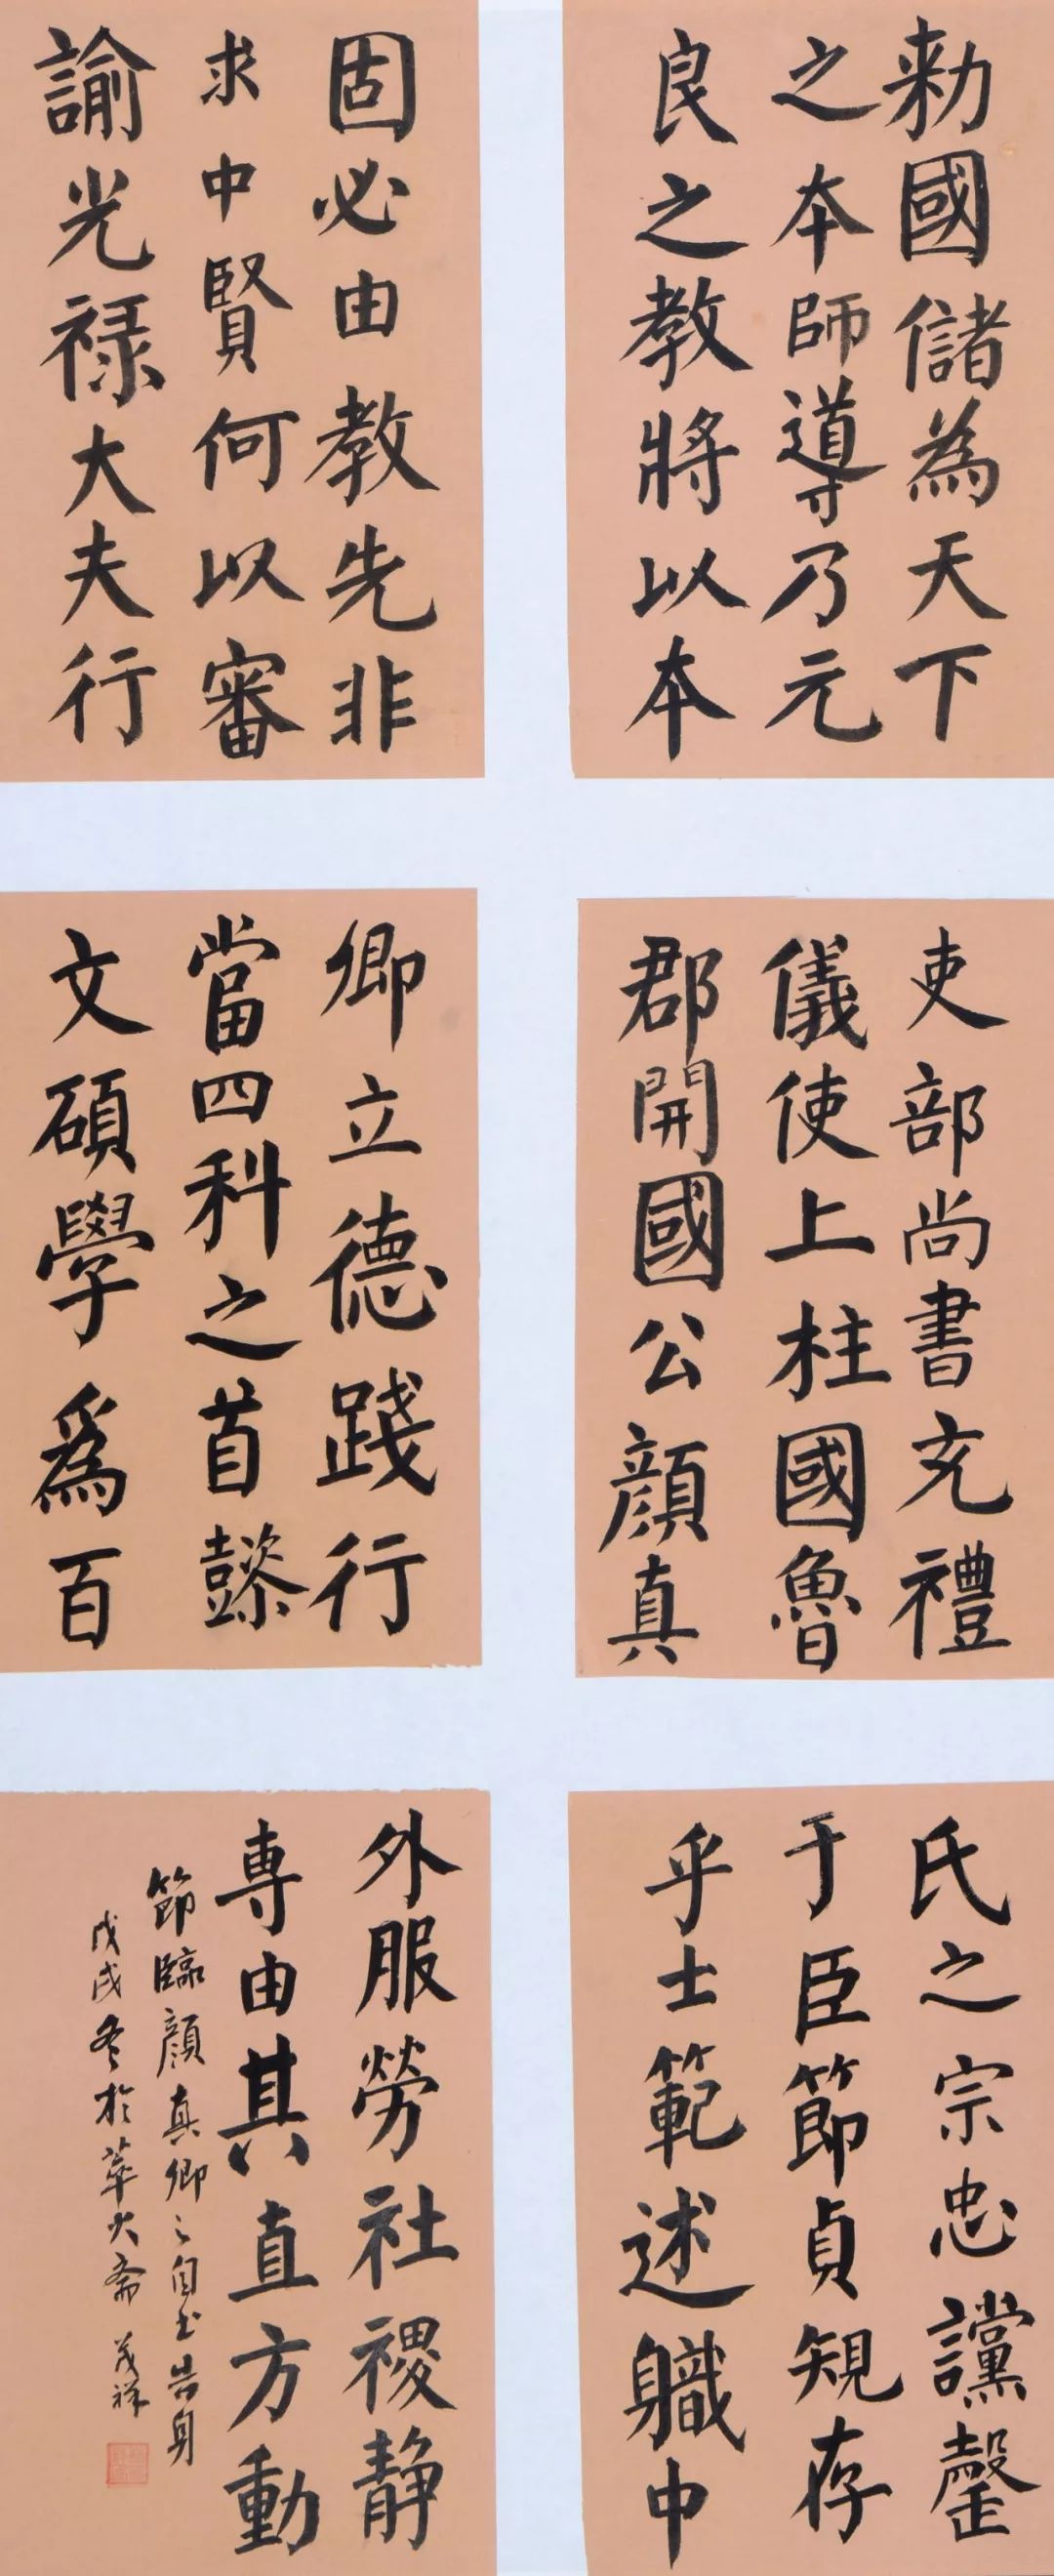 勑國儲為天下
之本師導乃元
良之教將以本
固必由教先非
求中賢何以審
諭光禄大夫行
吏部尚書充禮
儀使上柱國魯
郡開國公顔真
卿立德踐行
當四科之首懿
文碩學爲百
氏之宗忠讜罄
于臣節貞䂓存
乎士範述軄中
外服勞社稷静
専由其直方動
節臨顔真卿之自书告身
戊戌冬於 斋 茂祥